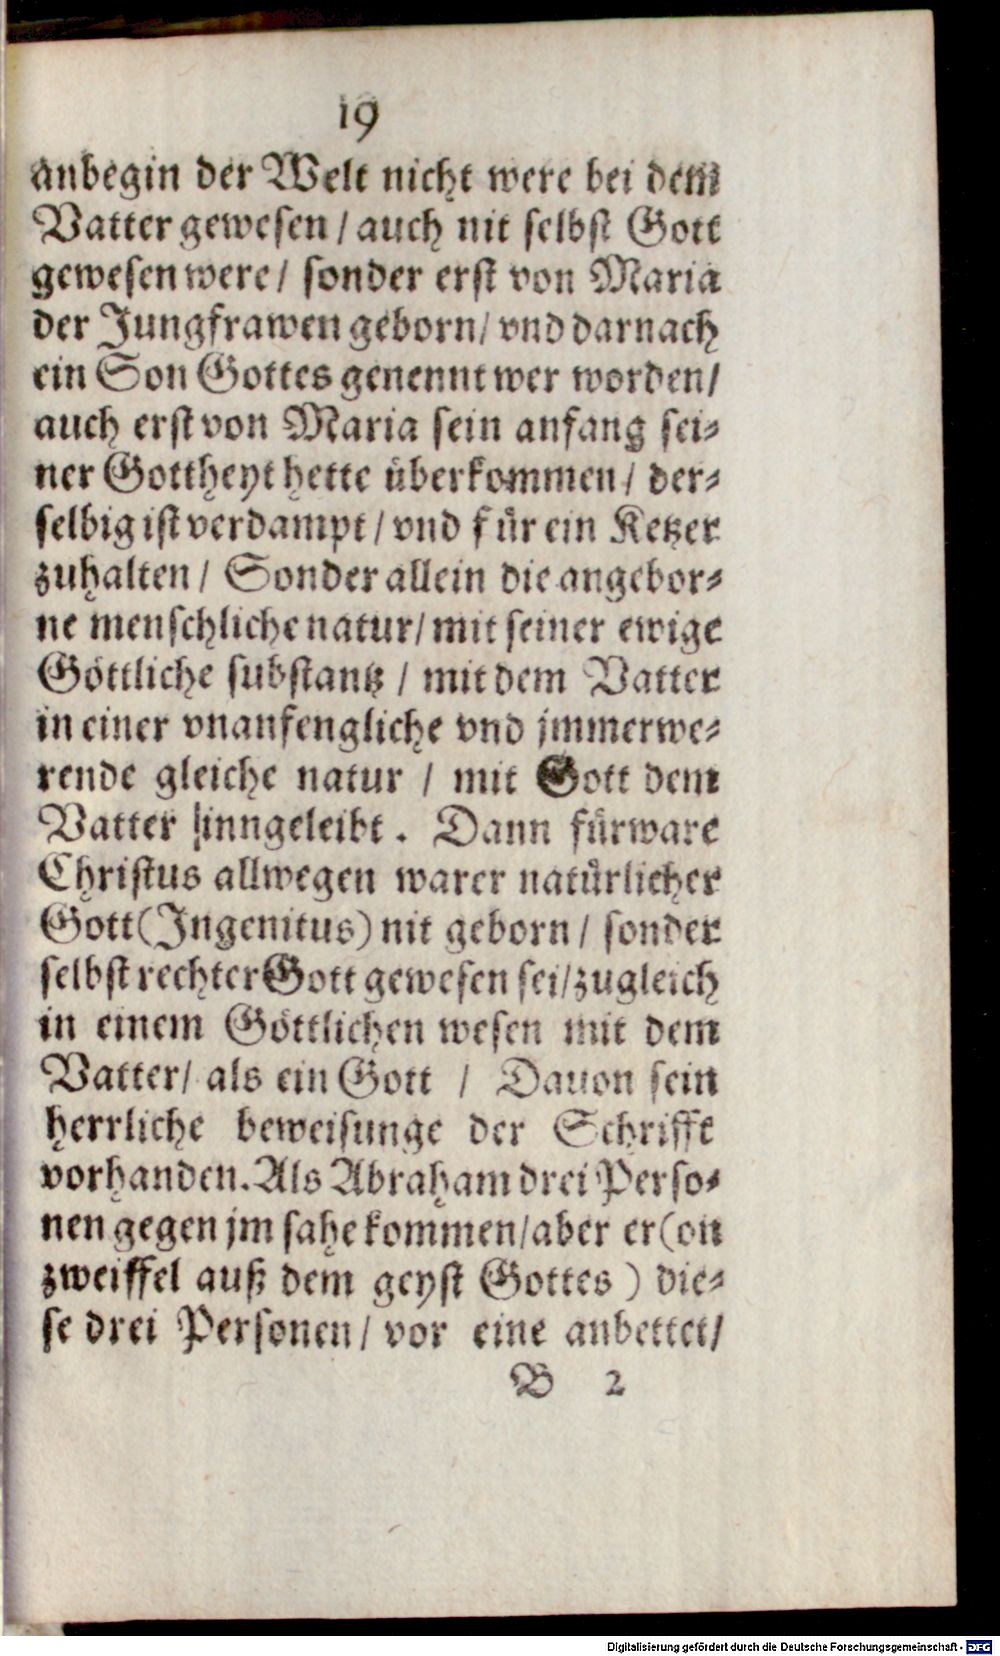 19
anbegin der Welt nicht were bei dem
Vatter gewesen / auch nit selbst Gott
gewesen were / sonder erst von Maria
der Jungfrawen geborn / vnd darnach
ein Son Gottes genennt wer worden /
auch erst von Maria sein anfang sei-
ner Gottheyt hette überkommen / der-
selbig ist verdampt / vnd für ein Ketzer
zuhalten / Sonder allein die angebor-
ne menschliche natur / mit seiner ewige
Göttliche substantz / mit dem Vatter
in einer vnanfengliche vnd jmmerwe-
rende gleiche natur / mit Gott dem
Vatter inngeleibt. Dann fürware
Christus allwegen warer natürlicher
Gott (Ingenitus) nit geborn / sonder
selbst rechter Gott gewesen sei / zugleich
in einem Göttlichen wesen mit dem
Vatter / als ein Gott / Dauon sein
herrliche beweisunge der Schrifft
vorhanden. Als Abraham drei Perso-
nen gegen jm sahe kommen / aber er (on
zweiffel auß dem geyst Gottes) die-
se drei Personen / vor eine anbettet /
B 2
Digitalisierung gefördert durch die Deutsche Forschungsgemeinschaft - DFG